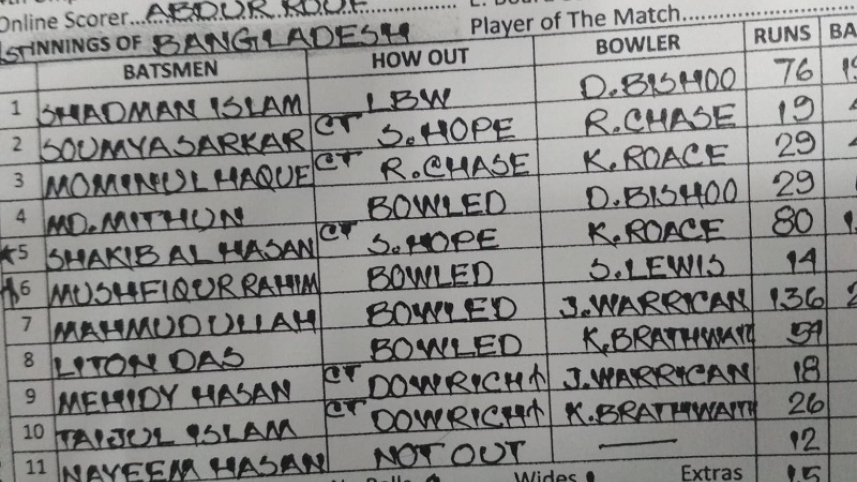 Online Scorer...ABDUR ROUF............ 
Player of The Match..................
1ST INNINGS OF BANGLADESH
BATSMEN HOW OUT BOWLER RUNS BA
1 SHADMAN ISLAM LBW D.BISHOO 76
2 SOUMYA SARKAR CT S.HOPE R.CHASE 19
3 MOMINUL HAQUE CT R.CHASE K.ROACE 29
4 MD.MITHUN BOWLED D.BISHOO 29
*5 SHAKIB AL HASAN CT S.HOPE K.ROACE 80
6 MUSHFIQUR RAHIM BOWLED S.LEWIS 14
7 MAHMUDULLAH BOWLED J.WARRICAN 136
8 LITON DAS BOWLED K.BRATHWAIT 54
9 MEHIDY HASAN CT DOWRICH J.WARRICAN 18
10 TAIJUL ISLAM CT DOWRICH K.BRATHWAITH 26
11 NAYEEM HASAN NOT OUT — 12
Wides Extras 15